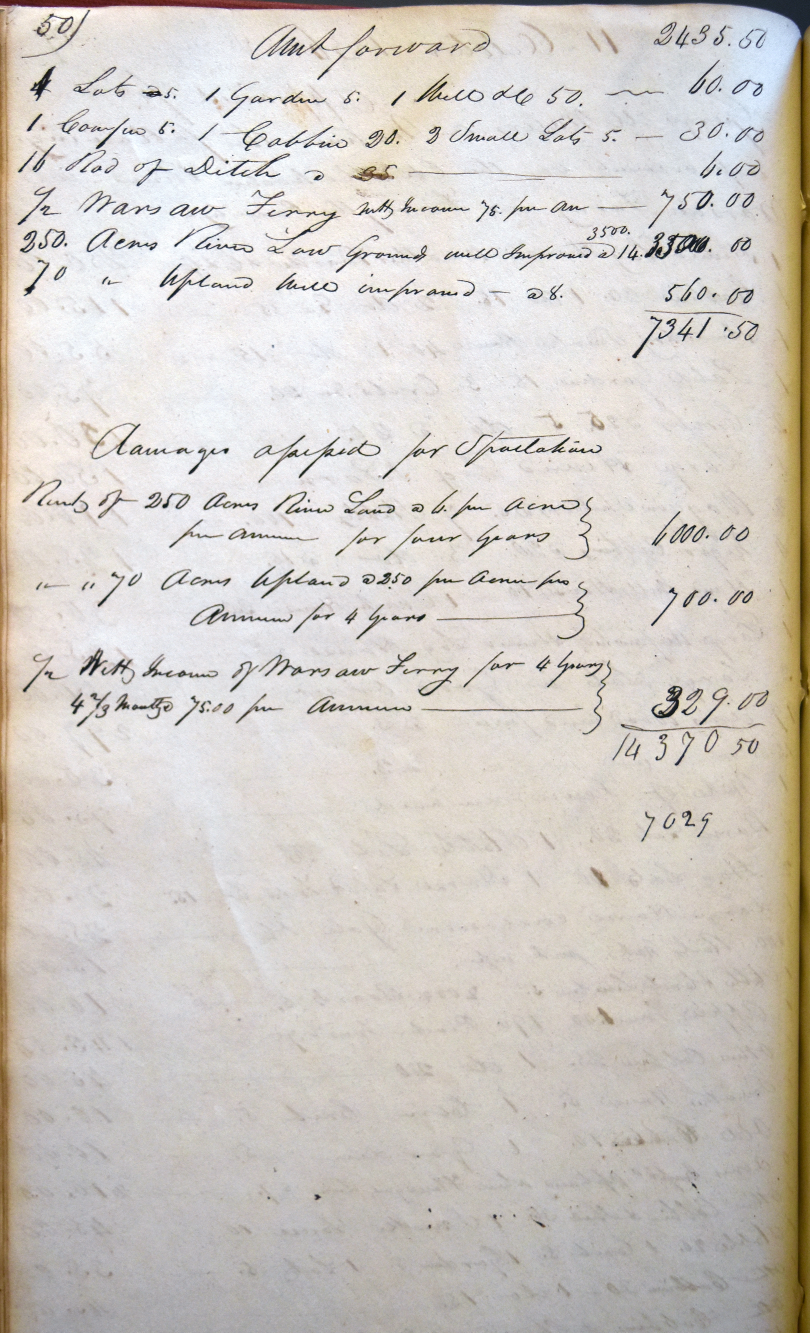 50)
Amt forward 2435.50
4 Lots 5. 1 Garden 5. 1 Well &c 50. — 60.00
1 5. 1 Cabbin 20. 2 Small Lots 5. — 30.00
16 Rod of Ditch a — 6.00
1/2 Warsaw Ferry Nett Income 75. per An — 750.00
3500.
250. Acres River Low Grounds well Improved a 14. 3500.00
70 " Upland Well improved — a 8. 560.00
7341.50
Damages assessed for Spoliation
Rent of 250 Acres River Land a 6. per Acre
per annum for four Years 6000.00
" " 70 Acres Upland a 2.50 per Acre per
Annum for 4 Years — 700.00
1/2 Nett Income of Warsaw Ferry for 4 Years
4 2/3 Months a 75.00 per Annum — 329.00
14370 50
7029